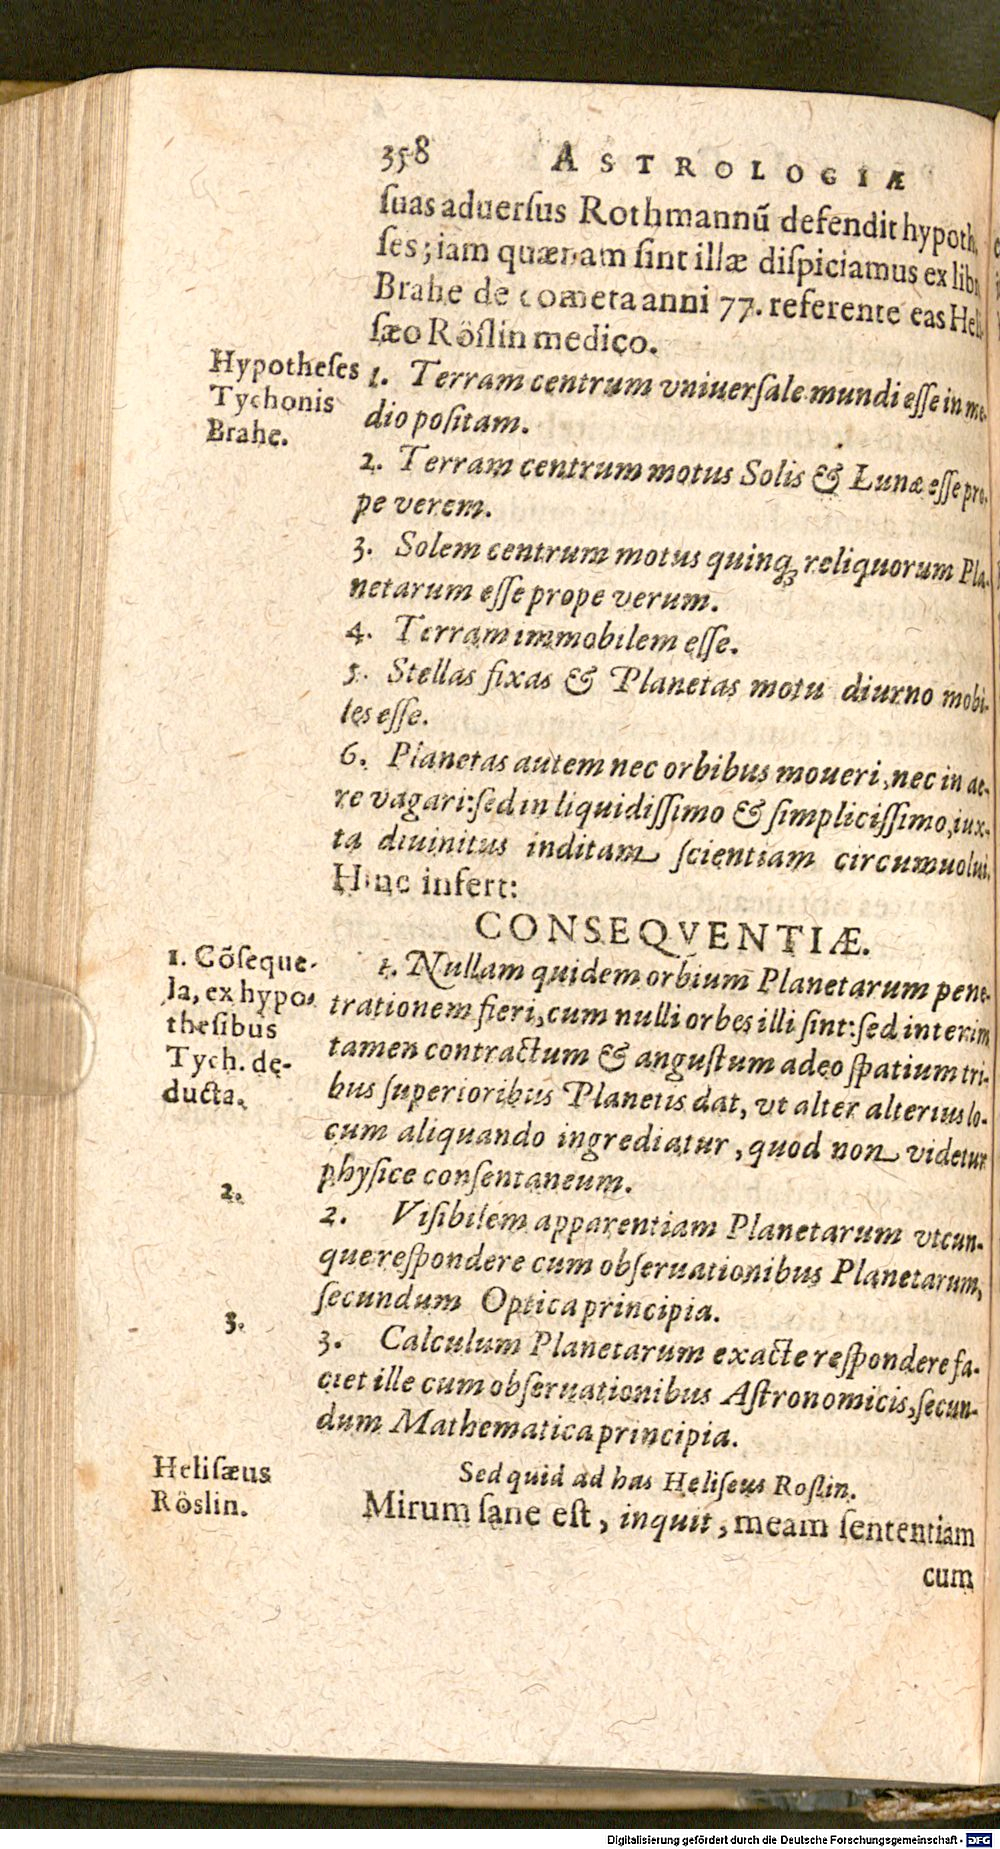 358 ASTROLOGIÆ
ſuas aduerſus Rothmannũ defendit hypoth
ſes; iam quænam ſint illæ diſpiciamus ex libr
Brahe de cometa anni 77. referente eas Heli-
ſæo Röſlin medico.
Hypotheſes
Tychonis
Brahe.
1. Terram centrum vniuerſale mundi eſſe in me-
dio poſitam.
2. Terram centrum motus Solis & Lunæ eſſe pro-
pe verem.
3. Solem centrum motus quinq; reliquorum Pla-
netarum eſſe prope verum.
4. Terram immobilem eſſe.
5. Stellas fixas & Planetas motu diurno mobi-
les eſſe.
6. Planetas autem nec orbibus moueri, nec in ae-
re vagari: ſed in liquidiſſimo & ſimpliciſſimo, iux-
ta diuinitus inditam ſcientiam circumuolui.
Hinc infert:
CONSEQVENTIÆ.
1. Cõſeque-
la, ex hypo-
theſibus
Tych. de-
ducta.
1. Nullam quidem orbium Planetarum pene-
trationem fieri, cum nulli orbes illi ſint: ſed interim
tamen contractum & anguſtum adeo ſpatium tri-
bus ſuperioribus Planetis dat, vt alter alterius lo-
cum aliquando ingrediatur, quod non videtur
phyſice conſentaneum.
2.
2. Viſibilem apparentiam Planetarum vtcun-
que reſpondere cum obſeruationibus Planetarum,
ſecundum Optica principia.
3.
3. Calculum Planetarum exacte reſpondere fa-
ciet ille cum obſeruationibus Aſtronomicis, ſecun-
dum Mathematica principia.
Sed quid ad has Heliſeus Roſlin.
Heliſæus
Röslin.
Mirum ſane eſt, inquit, meam ſententiam
cum
Digitalisierung gefördert durch die Deutsche Forschungsgemeinschaft - DFG